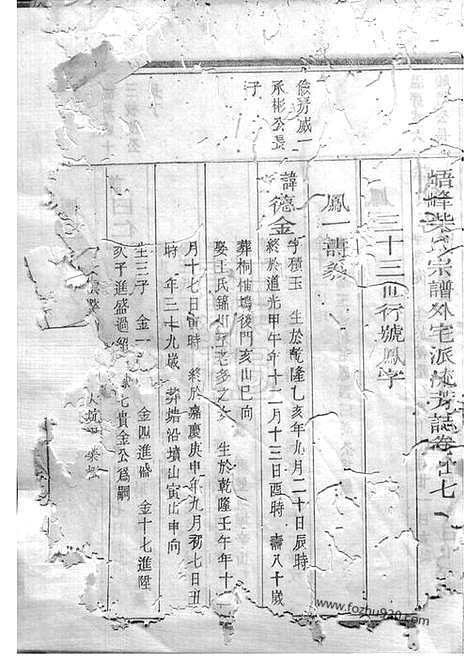 梧峰柴氏宗譜外宅派流芳誌卷廿七
三十三世行號鳳字
儉房威一
承彬公長
子
鳳一壽義
諱德金
字積玉 生於乾隆乙亥年九月二十日辰時
終於道光甲午年十二月十三日酉時 壽八十歲
葬桐柚塢後門亥山巳向
娶王氏錦川 老多之女 生於乾隆壬午年十二
月十七日寅時 終於嘉慶庚申年九月初七日丑
時 年三十九歲 葬塔沿墳山寅山申向
生三子 金一 金四進脩 金十七進陞
次子進盛過紹 七貴金公為嗣
www.fozhu920.com